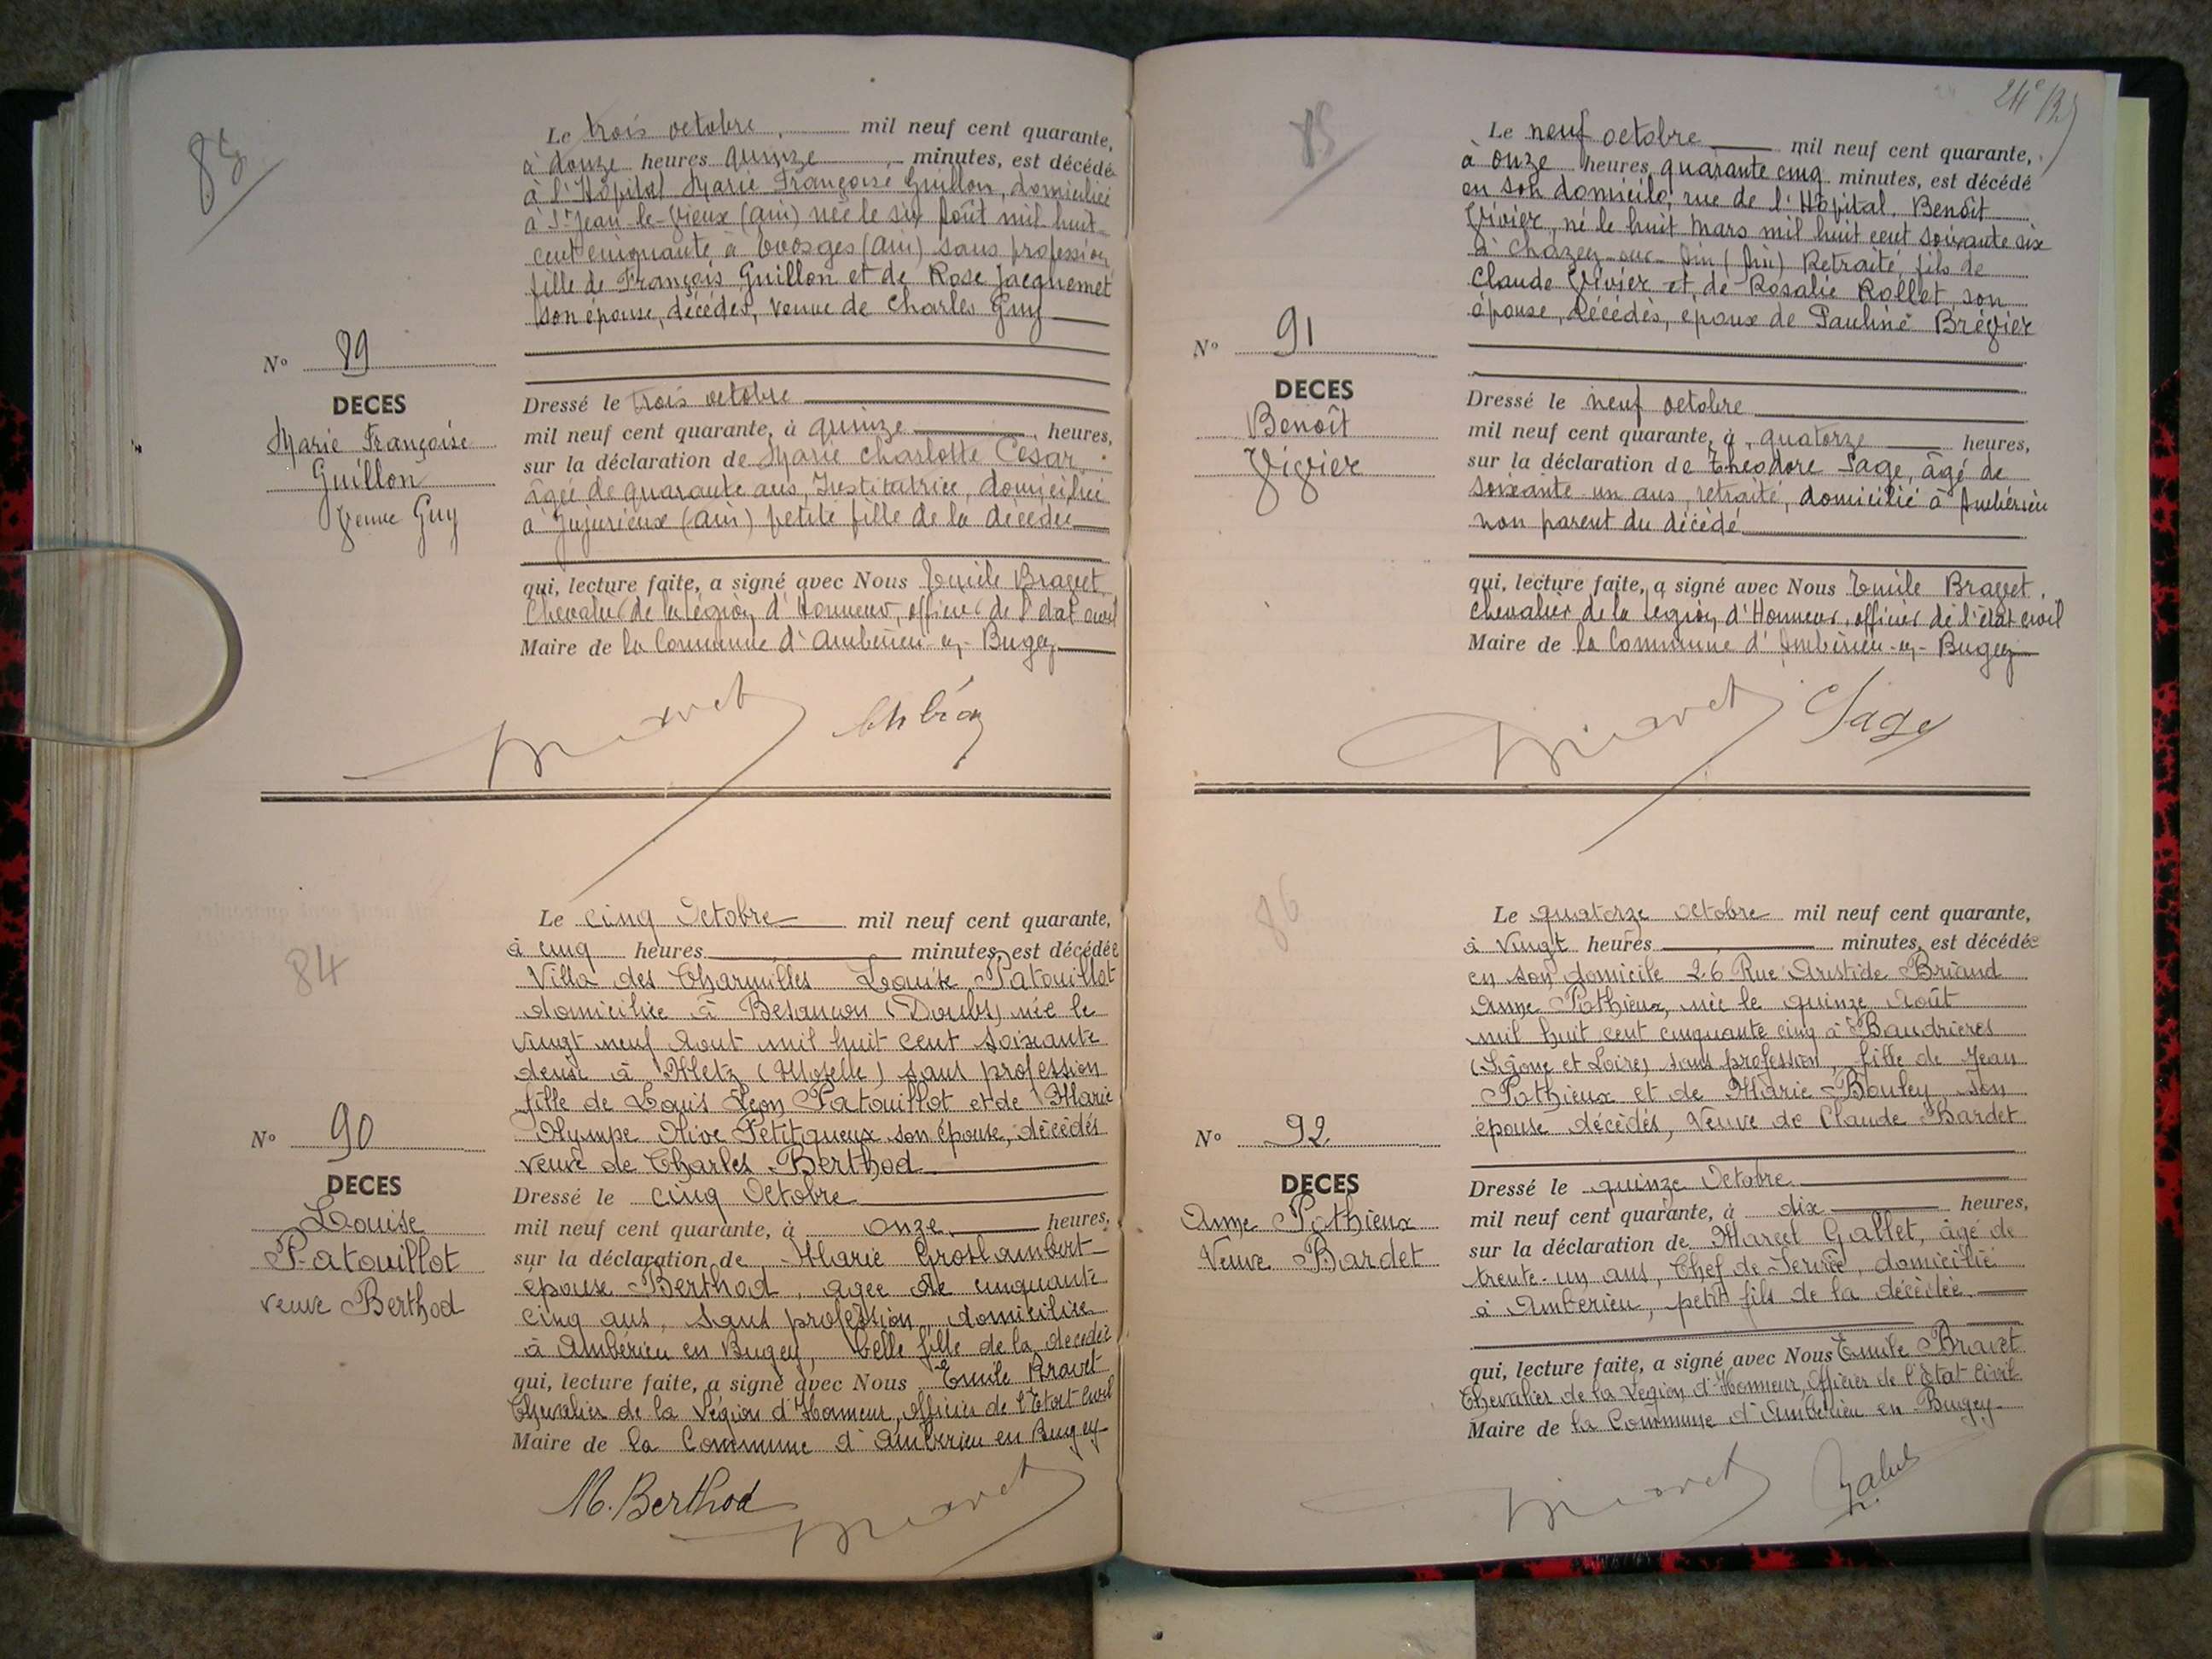 Le trois octobre mil neuf cent quarante,
à douze heures quinze minutes, est décédé
à l'Hôpital Marie Françoise Guillon, domiciliée
à St Jean-le-Vieux (ain) née le six Août mil huit
cent cinquante à (ain) sans profession
fille de François Guillon et de Rose Jacquemet
son épouse, décédés, veuve de Charles Guy
No 89
DECES
Marie Françoise
Guillon
veuve Guy
Dressé le trois octobre
mil neuf cent quarante, à quinze heures,
sur la déclaration de Marie Charlotte César
âgée de quarante ans, Institutrice, domiciliée
à Jujurieux (ain) petite fille de la décédée
qui, lecture faite, a signé avec Nous Emile Bravet
Chevalier de la légion d'Honneur, officier de l'état civil
Maire de la Commune d'Ambérieu-en-Bugey
Bravet
84
Le cinq Octobre mil neuf cent quarante,
à cinq heures minutes, est décédée
Villa des Charmilles Louise Patouillot
domiciliée à Besançon (Doubs) née le
vingt neuf Aout mil huit cent soixante
deux à Metz (Moselle) sans profession
fille de Louis Léon Patouillot et de Marie
Olympe Olive Petitqueux son épouse, décédés
veuve de Charles Berthod
No 90
DECES
Louise
Patouillot
veuve Berthod
Dressé le cinq Octobre
mil neuf cent quarante, à onze heures,
sur la déclaration de Marie Groslambert
épouse Berthod, agée de cinquante
cinq ans, sans profession, domiciliée
à Ambérieu en Bugey, belle fille de la décédée
qui, lecture faite, a signé avec Nous Emile Bravet
Chevalier de la Légion d'Honneur, officier de l'Etat Civil
Maire de la Commune d'Ambérieu en Bugey
M. Berthod Bravet
85
Le neuf octobre mil neuf cent quarante,
à onze heures quarante cinq minutes, est décédé
en son domicile, rue de l'Hôpital, Benoît
Vivier, né le huit mars mil huit cent soixante six
à Chazey-sur-Ain (Ain) Retraité, fils de
Claude Vivier et de Rosalie Rollet, son
épouse, décédés, époux de Pauline Brévier
No 91
DECES
Benoît
Vivier
Dressé le neuf octobre
mil neuf cent quarante, à quatorze heures,
sur la déclaration de Théodore Sage, âgé de
soixante-un ans, retraité, domicilié à Ambérieu
non parent du décédé
qui, lecture faite, a signé avec Nous Emile Bravet,
chevalier de la légion d'Honneur, officier de l'état civil
Maire de la Commune d'Ambérieu-en-Bugey
Bravet Sage
86
Le quatorze octobre mil neuf cent quarante,
à vingt heures minutes, est décédée
en son domicile 26 Rue Aristide Briand
Anne Pothieux, née le quinze Août
mil huit cent cinquante cinq à Baudrières
(Saône et Loire) sans profession, fille de Jean
Pothieux et de Marie Bouley son
épouse décédés, Veuve de Claude Bardet
No 92
DECES
Anne Pothieux
Veuve Bardet
Dressé le quinze Octobre
mil neuf cent quarante, à dix heures,
sur la déclaration de Marcel Gallet, âgé de
trente-un ans, Chef de Service, domicilié
à Ambérieu, petit fils de la décédée
qui, lecture faite, a signé avec Nous Emile Bravet
Chevalier de la Légion d'Honneur, Officier de l'Etat Civil
Maire de la Commune d'Ambérieu en Bugey
Bravet